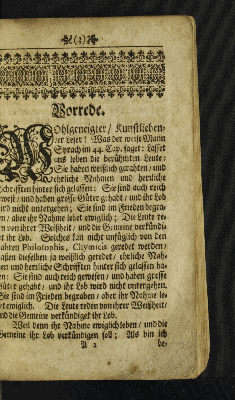 (3)
Vorrede.
Wohlgeneigter / Kunstlieben-
er Leser! Was der weise Mann
Syrach im 44. Cap. saget: Lasset
uns loben die berühmten Leute:
Sie haben weißlich gerahten / und
ehrliche Nahmen und herrliche
Schrifften hinter sich gelassen: Sie sind auch reich
gewest / und haben grosse Güter gehabt / und ihr Lob
wird nicht untergehen; Sie sind im Frieden begra-
en / aber ihr Nahme lebet ewiglich; Die Leute re-
n von ihrer Weißheit / und die Gemeine verkündi-
et ihr Lob. Solches kan nicht unfüglich von den
ahren Philosophis, Chymicis geredet werden /
aßen dieselben ja weißlich geredet / ehrliche Nah-
en und herrliche Schrifften hinter sich gelassen ha-
en: Sie sind auch reich gewesen / und haben grosse
Güter gehabt / und ihr Lob wird nicht untergehen.
Sie sind im Frieden begraben / aber ihr Nahme le-
et ewiglich. Die Leute reden von ihrer Weißheit /
und die Gemeine verkündiget ihr Lob.
Weil denn ihr Nahme ewiglich leben / und die
Gemeine ihr Lob verkündigen soll; Als bin ich
A 2 be-